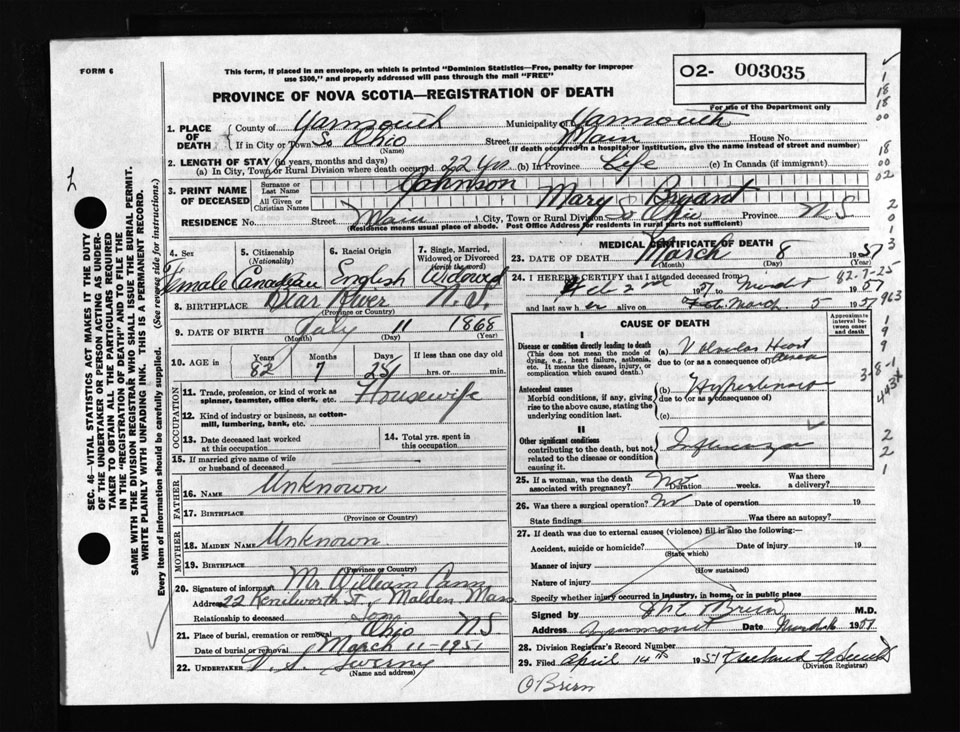 FORM 6
This form, if placed in an envelope, on which is printed "Dominion Statistics—Free, penalty for improper
use $300," and properly addressed will pass through the mail "FREE"
PROVINCE OF NOVA SCOTIA—REGISTRATION OF DEATH
O2- 003035
For use of the Department only
1. PLACE OF DEATH County of Yarmouth Municipality of Yarmouth
If in City or Town So Ohio (Name) Street Main House No.
(If death occurred in a hospital or institution, give the name instead of street and number)
2. LENGTH OF STAY (in years, months and days)
(a) In City, Town or Rural Division where death occurred 22 Yrs. (b) In Province Life (c) In Canada (if immigrant)
3. PRINT NAME OF DECEASED Surname or Last Name Johnson
All Given or Christian Names Mary Bryant
RESIDENCE No. Street Main City, Town or Rural Division So Ohio Province N S
(Residence means usual place of abode. Post Office Address for residents in rural parts not sufficient)
4. Sex Female
5. Citizenship (Nationality) Canadian
6. Racial Origin English
7. Single, Married, Widowed or Divorced (write the word) Widowed
8. BIRTHPLACE Bear River N.S.
(Province or Country)
9. DATE OF BIRTH July 11 1868
(Month) (Day) (Year)
10. AGE in Years 82 Months 7 Days 25 If less than one day old hrs. or min.
OCCUPATION
11. Trade, profession, or kind of work as spinner, teamster, office clerk, etc. Housewife
12. Kind of industry or business, as cotton-mill, lumbering, bank, etc.
13. Date deceased last worked at this occupation
14. Total yrs. spent in this occupation
15. If married give name of wife or husband of deceased
FATHER
16. NAME Unknown
17. BIRTHPLACE (Province or Country)
MOTHER
18. MAIDEN NAME Unknown
19. BIRTHPLACE (Province or Country)
20. Signature of informant Mr William Cann
Address 22 Kenilworth St, Malden Mass
Relationship to deceased Son
21. Place of burial, cremation or removal Ohio N.S.
Date of burial or removal March 11-1951
22. UNDERTAKER V. S. Sweeny
MEDICAL CERTIFICATE OF DEATH
23. DATE OF DEATH March 8 1951
(Month) (Day) (Year)
24. I HEREBY CERTIFY that I attended deceased from
Feb 2nd 1951 to March 8 1951
and last saw her alive on March 5 1951
82-7-25
CAUSE OF DEATH
Approximate interval between onset and death
I
Disease or condition directly leading to death
(This does not mean the mode of dying, e.g., heart failure, asthenia, etc. It means the disease, injury, or complication which caused death.)
(a) Valvular Heart
due to (or as a consequence of)
Antecedent causes
Morbid conditions, if any, giving rise to the above cause, stating the underlying condition last.
(b) Hypertension
due to (or as a consequence of)
(c)
II
Other significant conditions
contributing to the death, but not related to the disease or condition causing it.
Influenza
25. If a woman, was the death associated with pregnancy? No Duration weeks. Was there a delivery?
26. Was there a surgical operation? No Date of operation 19
State findings Was there an autopsy?
27. If death was due to external causes (violence) fill in also the following:
Accident, suicide or homicide? (State which) Date of injury 19
Manner of injury (How sustained)
Nature of injury
Specify whether injury occurred in industry, in home, or in public place
Signed by O'Brien M.D.
Address Yarmouth Date March 8 1951
28. Division Registrar's Record Number
29. Filed April 14th 1951
(Name and address)
O'Brien
SEC. 46—VITAL STATISTICS ACT MAKES IT THE DUTY
OF THE UNDERTAKER OR PERSON ACTING AS UNDER-
TAKER TO OBTAIN ALL THE PARTICULARS REQUIRED
IN THE "REGISTRATION OF DEATH" AND TO FILE THE
SAME WITH THE DIVISION REGISTRAR WHO SHALL ISSUE THE BURIAL PERMIT.
WRITE PLAINLY WITH UNFADING INK. THIS IS A PERMANENT RECORD.
Every item of information should be carefully supplied. (See reverse side for instructions.)